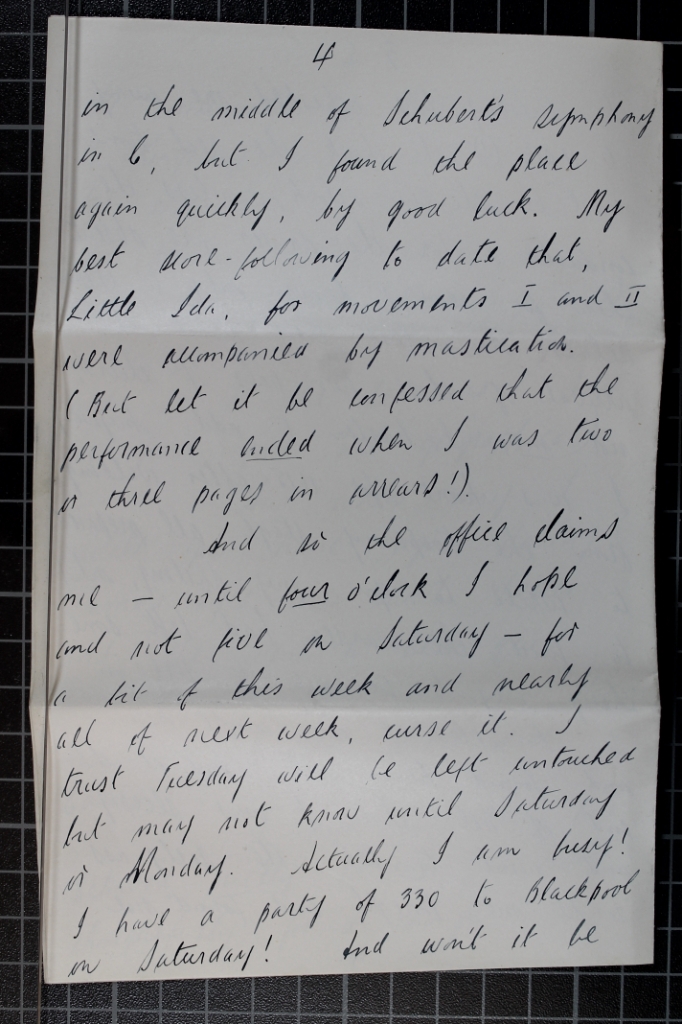 4
in the middle of Schubert's symphony
in C, but I found the place
again quickly, by good luck. My
best score-following to date that,
Little Ida, for movements I and II
were accompanied by mastication.
(But let it be confessed that the
performance ended when I was two
or three pages in arrears!).
And so the office claims
me — until four o'clock I hope
and not five on Saturday — for
a bit of this week and nearly
all of next week, curse it. I
trust Tuesday will be left untouched
but may not know until Saturday
or Monday. Actually I am busy!
I have a party of 330 to Blackpool
on Saturday! And won't it be